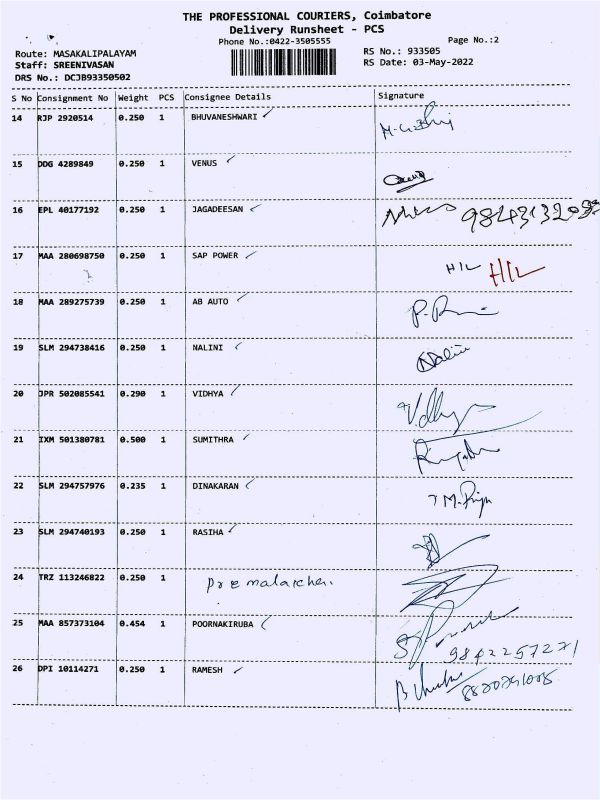 THE PROFESSIONAL COURIERS, Coimbatore
Delivery Runsheet - PCS
Phone No.:0422-3505555
Page No.:2
Route: MASAKALIPALAYAM
RS No.: 933505
Staff: SREENIVASAN
RS Date: 03-May-2022
DRS No.: DCJB93350502
S No Consignment No Weight PCS Consignee Details Signature
14 RJP 2920514 0.250 1 BHUVANESHWARI
15 DDG 4289849 0.250 1 VENUS
16 EPL 40177192 0.250 1 JAGADEESAN
17 MAA 280698750 0.250 1 SAP POWER H/L H/L
18 MAA 289275739 0.250 1 AB AUTO
19 SLM 294738416 0.250 1 NALINI Nalini
20 JPR 502085541 0.290 1 VIDHYA Vidhya
21 IXM 501380781 0.500 1 SUMITHRA
22 SLM 294757976 0.235 1 DINAKARAN
23 SLM 294740193 0.250 1 RASIHA
24 TRZ 113246822 0.250 1
25 MAA 857373104 0.454 1 POORNAKIRUBA
9842257271
26 DPI 10114271 0.250 1 RAMESH